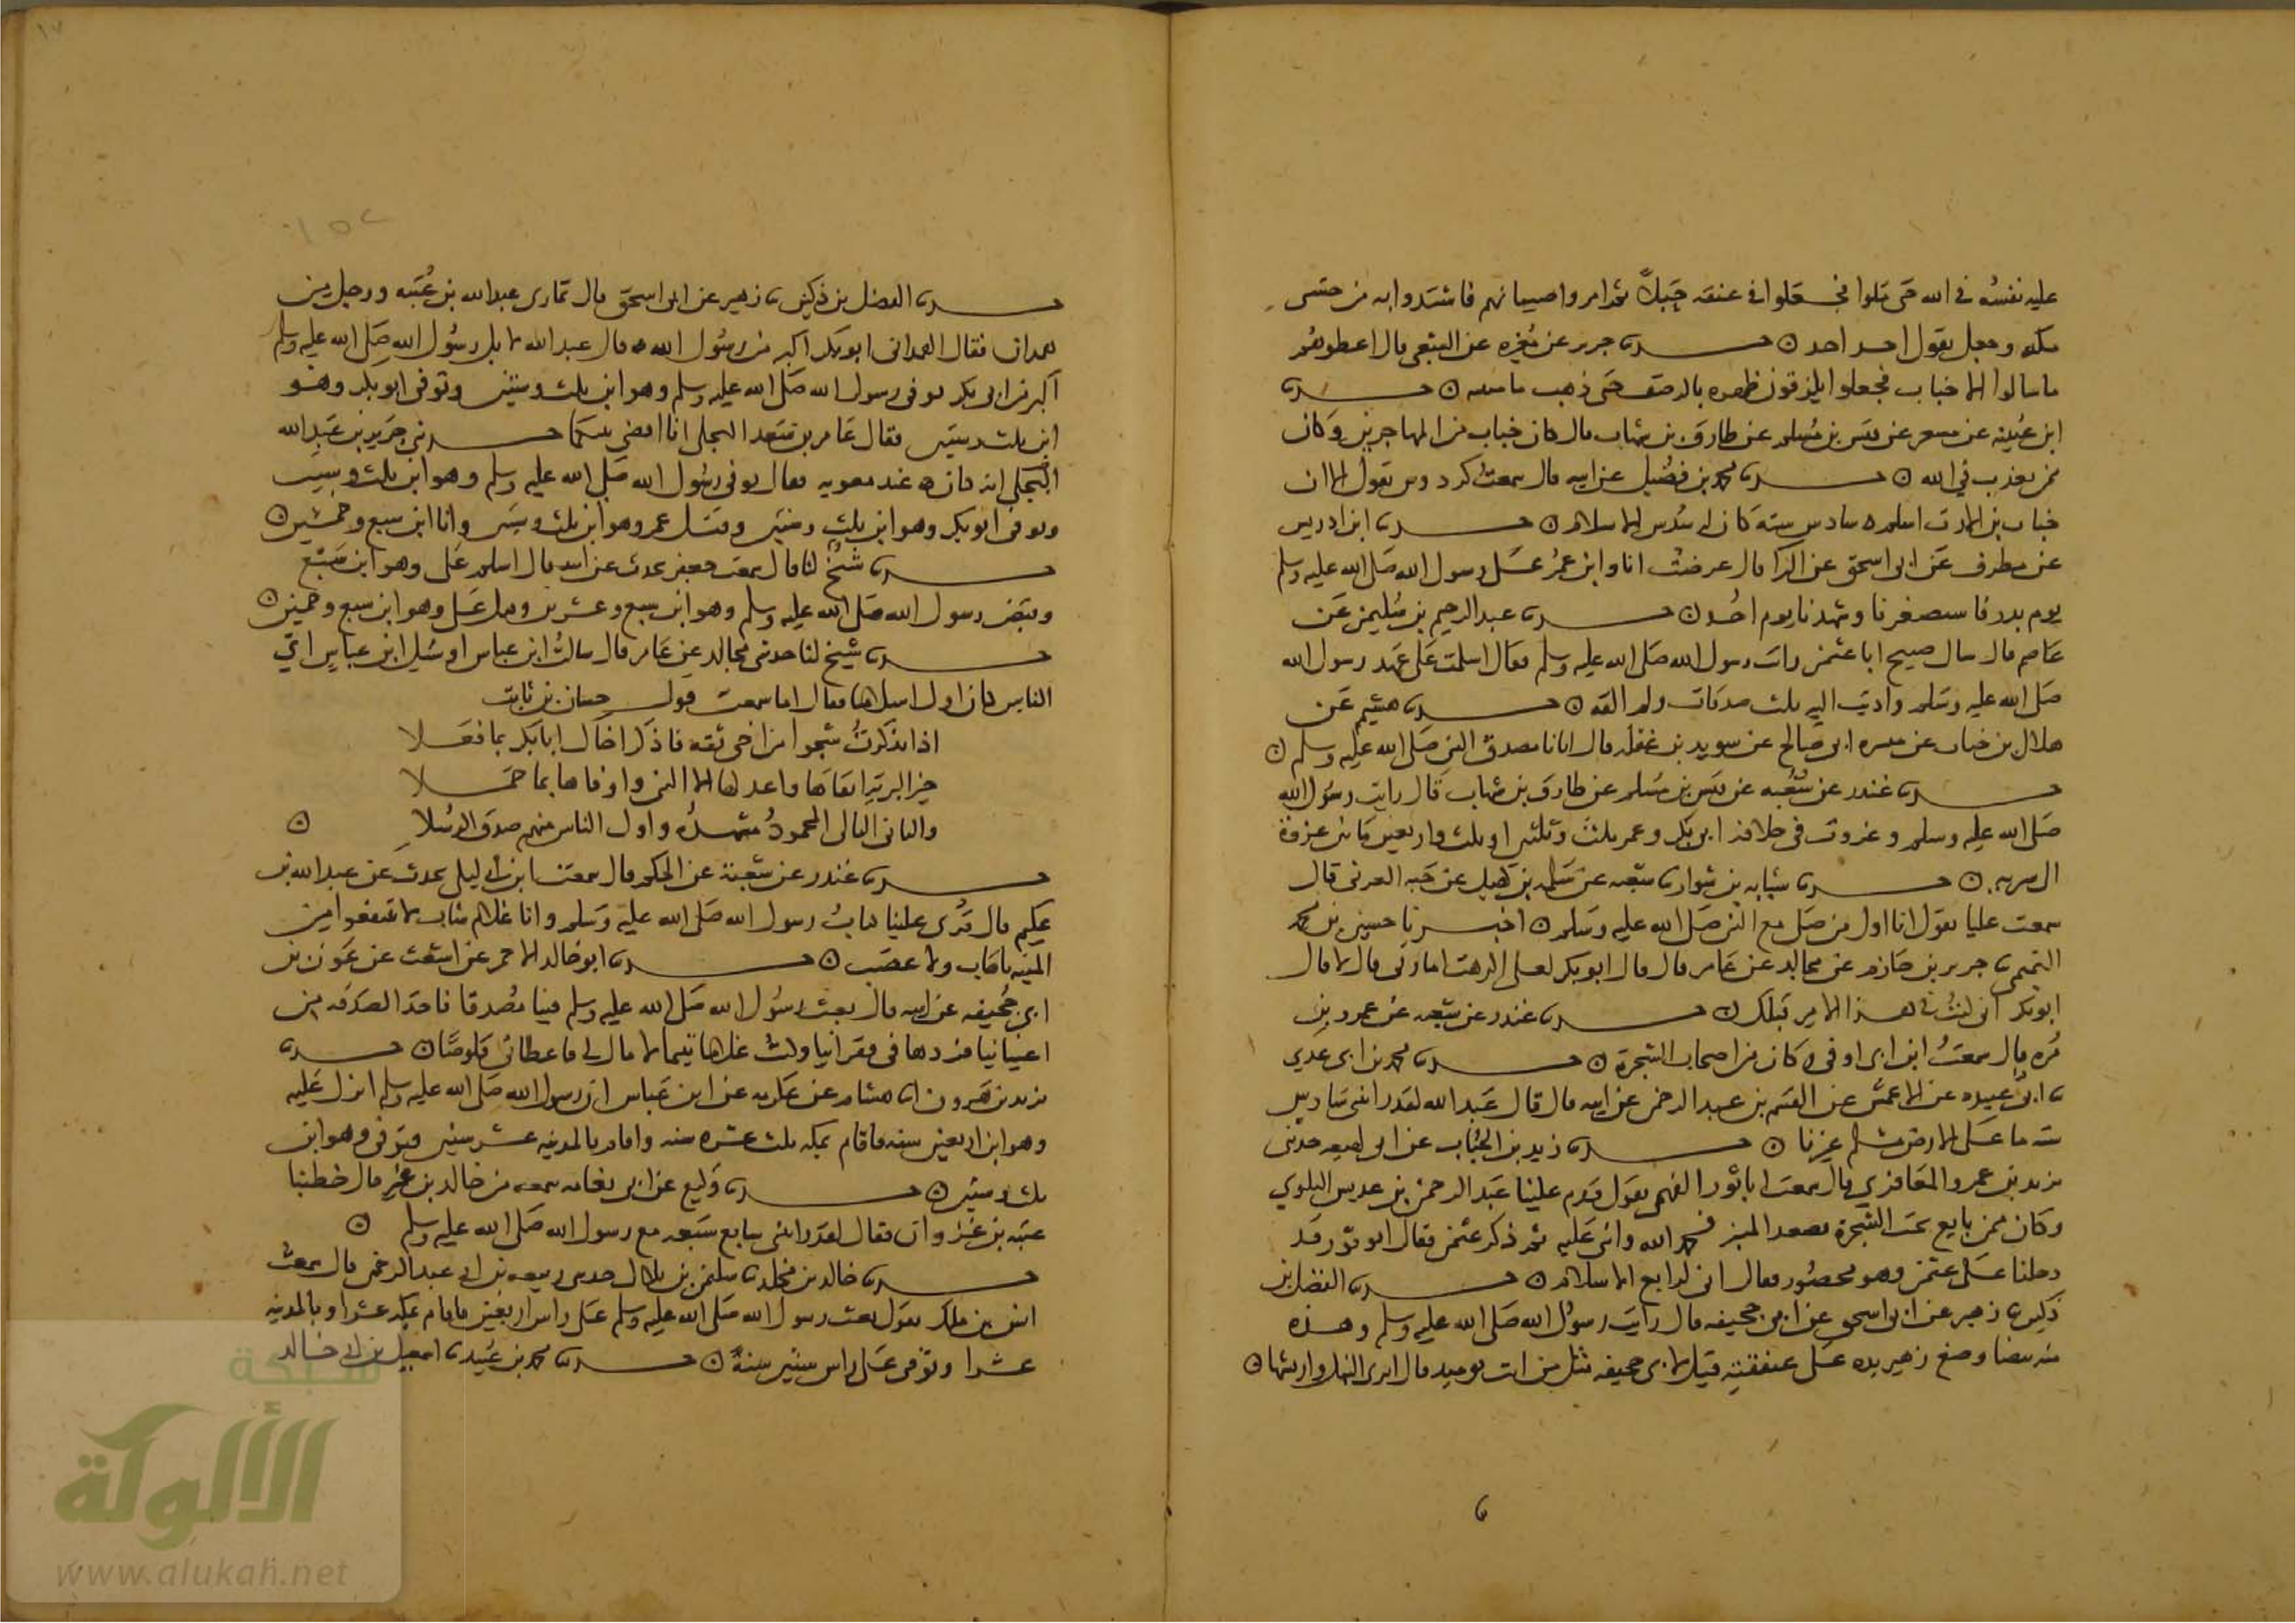 عليه نفسه في الله حتى ملوا فجعلوا في عنقه حبلاً ثم امروا صبيانهم فاشتدوا به من حشى
مكه وجعل يقول احد احد ه حدثنا جرير عن مغيره عن الشعبي قال اعطوهم
ما سالوا الا خباب فجعلوا يلزقون ظهره بالرضف حتى ذهب ما ه حدثنا
ابن عيينه عن مسعر عن قيس بن مسلم عن طارق بن شهاب قال كان خباب من المهاجرين وكان
ممن يعذب في الله ه حدثنا محمد بن فضيل عن ابيه قال سمعت كردوس يقول الا ان
خباب بن الارت اسلم سادس سته كان له سدس الاسلام ه حدثنا ابن ادريس
عن مطرف عن ابي اسحق عن البرا قال عرضت انا وابن عمر على رسول الله صلى الله عليه وسلم
يوم بدر فاستصغرنا وشهدنا يوم احد ه حدثنا عبد الرحيم بن سليمن عن
عاصم قال سال صبيح ابا عثمن رايت رسول الله صلى الله عليه وسلم فقال اسلمت على عهد رسول الله
صلى الله عليه وسلم واديت اليه ثلث صدقات ولم القه ه حدثنا هشيم عن
هلال بن خباب عن ميسره ابي صالح عن سويد بن غفله قال اتانا مصدق النبي صلى الله عليه وسلم ه
حدثنا غندر عن شعبه عن قيس بن مسلم عن طارق بن شهاب قال رايت رسول الله
صلى الله عليه وسلم وغزوت في خلافة ابي بكر وعمر ثلث وثلثين او ثلث واربعين من غزوة
الى سريه ه حدثنا شبابه بن سوار حدثنا شعبه عن سلمه بن كهيل عن حبه العرني قال
سمعت عليا يقول انا اول من صلى مع النبي صلى الله عليه وسلم ه اخبرنا حسين بن محمد
التميمي حدثنا جرير بن حازم عن مجالد عن عامر قال قال ابو بكر لعلي اكرهت امارتي قال لا قال
ابو بكر اني كنت في هذا الامر قبلك ه حدثنا غندر عن شعبه عن عمرو بن
مره قال سمعت ابن ابي اوفى وكان من اصحاب الشجرة ه حدثنا محمد بن ابي عدي
ابي عبيده عن الاعمش عن القسم بن عبد الرحمن عن ابيه قال قال عبد الله لقد رايتني سادس
سته ما على الارض مسلم غيرنا ه حدثنا زيد بن الحباب عن ابن لهيعه حدثني
يزيد بن عمرو المعافري قال سمعت ابا ثور الفهمي يقول قدم علينا عبد الرحمن بن عديس البلوي
وكان ممن بايع تحت الشجرة فصعد المنبر فحمد الله واثنى عليه ثم ذكر عثمن فقال ابو ثور قد
دخلنا على عثمن وهو محصور فقال اني لرابع الاسلام ه حدثنا الفضل بن
دكين حدثنا زهير عن ابي اسحق عن ابي جحيفه قال رايت رسول الله صلى الله عليه وسلم وهذه
منه بيضا وضع زهير يده على عنفقته قيل لابي جحيفه مثل من انت يوميذ قال ابري النبل واريشها ه
حدثنا الفضل بن دكين حدثنا زهير عن ابي اسحق قال تمارى عبد الله بن عتبه ورجل من
همدان فقال الهمداني ابو بكر اكبر من رسول الله قال عبد الله لا بل رسول الله صلى الله عليه وسلم
اكبر من ابي بكر توفي رسول الله صلى الله عليه وسلم وهو ابن ثلث وستين وتوفي ابو بكر وهو
ابن ثلث وستين فقال عامر بن سعد البجلي انا اقضي بينكما حدثني جرير بن عبد الله
البجلي انه كان عند معويه فقال توفي رسول الله صلى الله عليه وسلم وهو ابن ثلث وستين
وتوفي ابو بكر وهو ابن ثلث وستين وقتل عمر وهو ابن ثلث وستين وانا ابن سبع وخمسين ه
حدثنا شيخ لنا قال سمعت جعفر يحدث عن ابيه قال اسلم علي وهو ابن سبع
وقبض رسول الله صلى الله عليه وسلم وهو ابن سبع وعشرين وقتل علي وهو ابن سبع وخمسين ه
حدثنا شيخ لنا حدثني مجالد عن عامر قال سالت ابن عباس او سئل ابن عباس اي
الناس كان اول اسلاما فقال اما سمعت قول حسان بن ثابت
اذا تذكرت شجوا من اخي ثقه فاذكر اخاك ابا بكر بما فعلا
خير البرية اتقاها واعدلها الا النبي واوفاها بما حملا
والثاني التالي المحمود مشهده واول الناس منهم صدق الرسلا ه
حدثنا غندر عن شعبة عن الحكم قال سمعت ابن ابي ليلى يحدث عن عبد الله بن
عكيم قال قري علينا كتاب رسول الله صلى الله عليه وسلم وانا غلام شاب لا تنتفعوا من
الميته باهاب ولا عصب ه حدثنا ابو خالد الاحمر عن اشعث عن عون بن
ابي جحيفه عن ابيه قال بعث رسول الله صلى الله عليه وسلم فينا مصدقا فاخذ الصدقه من
اغنيائنا فردها في فقرائنا وكنت غلاما يتيما لا مال لي فاعطاني قلوصا ه حدثنا
يزيد بن هرون هشام عن عكرمه عن ابن عباس ان رسول الله صلى الله عليه وسلم انزل عليه
وهو ابن اربعين سنه فاقام بمكه ثلث عشره سنه واقام بالمدينه عشر سنين فتوفي وهو ابن
ثلث وستين ه حدثنا وكيع عن ابي نعامه سمعه من خالد بن عمير قال خطبنا
عتبه بن غزوان فقال لقد رايتني سابع سبعه مع رسول الله صلى الله عليه وسلم ه
حدثنا خالد بن مخلد حدثنا سليمن بن بلال حدثني ربيعه بن ابي عبد الرحمن قال سمعت
انس بن ملك يقول بعث رسول الله صلى الله عليه وسلم على راس اربعين فاقام بمكه عشرا وبالمدينه
عشرا وتوفي على راس ستين سنة ه حدثنا محمد بن عبيد حدثنا اسمعيل بن ابي خالد
شبكة
الألوكة
www.alukah.net